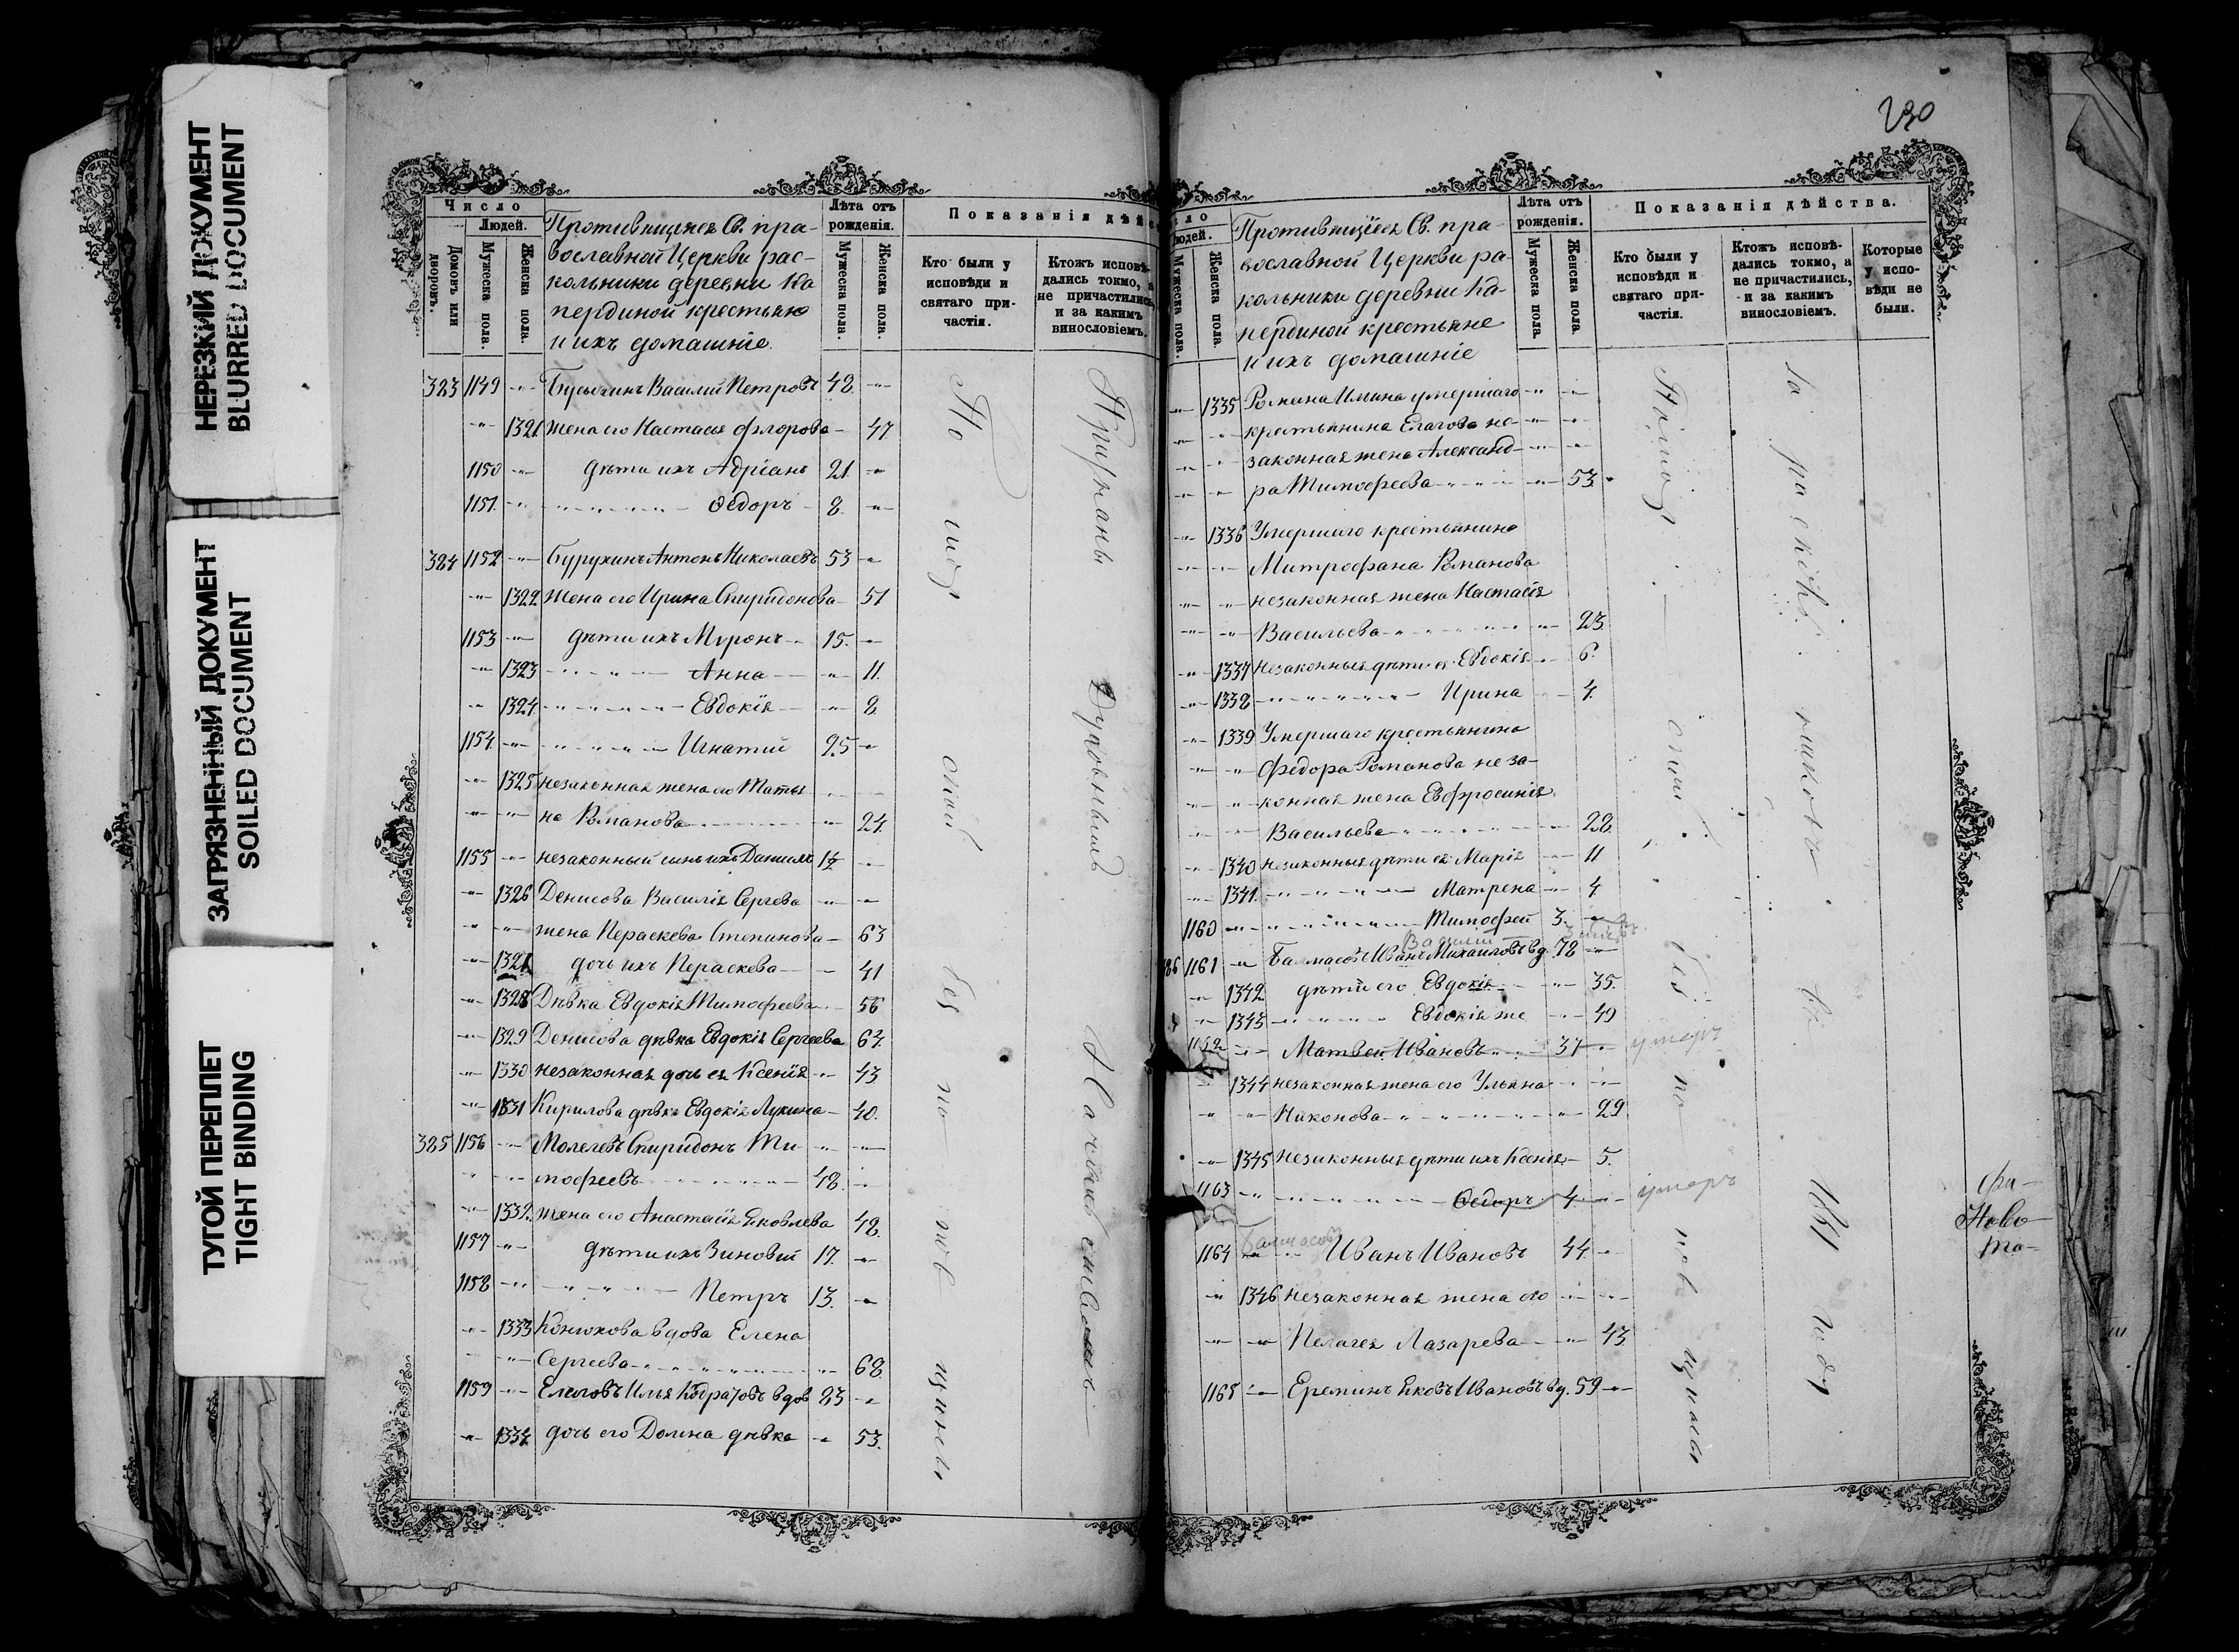 НЕРЕЗКИЙ ДОКУМЕНТ
BLURRED DOCUMENT
ЗАГРЯЗНЕННЫЙ ДОКУМЕНТ
SOILED DOCUMENT
ТУГОЙ ПЕРЕПЛЕТ
TIGHT BINDING
Число
Людей.
Домовъ или дворовъ.
Мужеска пола.
Женска пола.
Противящіяся Св. пра-
вославной Церкви рас-
кольники деревни Ка
пердиной крестьяне
и ихъ домашніе.
Лѣта отъ рожденія.
Мужеска пола.
Женска пола.
Показанія дѣйс
Кто были у исповѣди и святаго при- частія.
Ктожъ исповѣ- дались токмо, а не причастились, и за какимъ винословіемъ.
323 1149 Василий Петровъ 42
1321 жена его Настасья Флорова 47
1150 дѣти ихъ Адріанъ 21
1151 Ѳедоръ 8.
324 1152 Бурухинъ Антонъ Николаевъ 53
1322 Жена его Ирина Спиридонова 51
1153 дѣти ихъ Миронъ 15.
1323 Анна 11.
1324 Евдокія 8.
1154 Игнатий 25
1325 незаконная жена его Татья
на Романова 24.
1155 незаконный сынъ ихъ Даниилъ
1326 Денисова Василія Сергева
жена Параскева Степанова 63
1327 дочь ихъ Параскева 41
1328 Дѣвка Евдокія Тимофеева 56
1329 Денисова дѣвка Евдокія Сергеева 64.
1330 незаконная дочь ея Ксенія 43
1331 Кирилова дѣвка Евдокія Лукина 40.
325 1156 Спиридонъ Ти
мофеевъ 48.
1332 жена его Анастасія Яковлева 48.
1157 дѣти ихъ Зиновий 17.
1158 Петръ 13.
1333 Конюхова вдова Елена
Сергеева 68.
1159 Илья вдов 83
1334 дочь его Домна дѣвка 53.
По
Духовнымъ
230
Людей.
Мужеска пола.
Женска пола.
Противящіяся Св. пра-
вославной Церкви ра
кольники деревни Ка-
пердиной крестьяне
и ихъ домашніе
Лѣта отъ рожденія.
Мужеска пола.
Женска пола.
Показанія дѣйства.
Кто были у исповѣди и святаго при- частія.
Ктожъ исповѣ- дались токмо, а не причастились, и за какимъ винословіемъ.
Которые у испо- вѣди не были.
1335 умершаго
крестьянина Елагова не-
законная жена Александ-
ра Тимофеева 53
1336 Умершаго крестьянина
Митрофана Романова
незаконная жена Настасія
Васильева 23.
1337 незаконныя дѣти ея Евдокія 6.
1338 Ирина 4.
1339 Умершаго крестьянина
Федора Романова неза-
конная жена Евфросинія
Васильева 28.
1340 незаконныя дѣти ея Марія 11
1341 Матрена 4
1160 Тимофей 3.
1161 Балмасовъ Иванъ Михайловъ вд. 78
1342 дѣти его Евдокія 35.
1343 Евдокія же 49
1162 Матвей Ивановъ 37 умеръ
1344 незаконная жена его Ульяна
Никонова 29
1345 незаконныя дѣти ихъ Ксенія 5.
1163 Ѳедоръ 4 умеръ
Балмасовъ
1164 Иванъ Ивановъ 44.
1346 незаконная жена его
Пелагея Лазарева 43.
1165 Ереминъ Яковъ Ивановъ вд. 59
за расколъ